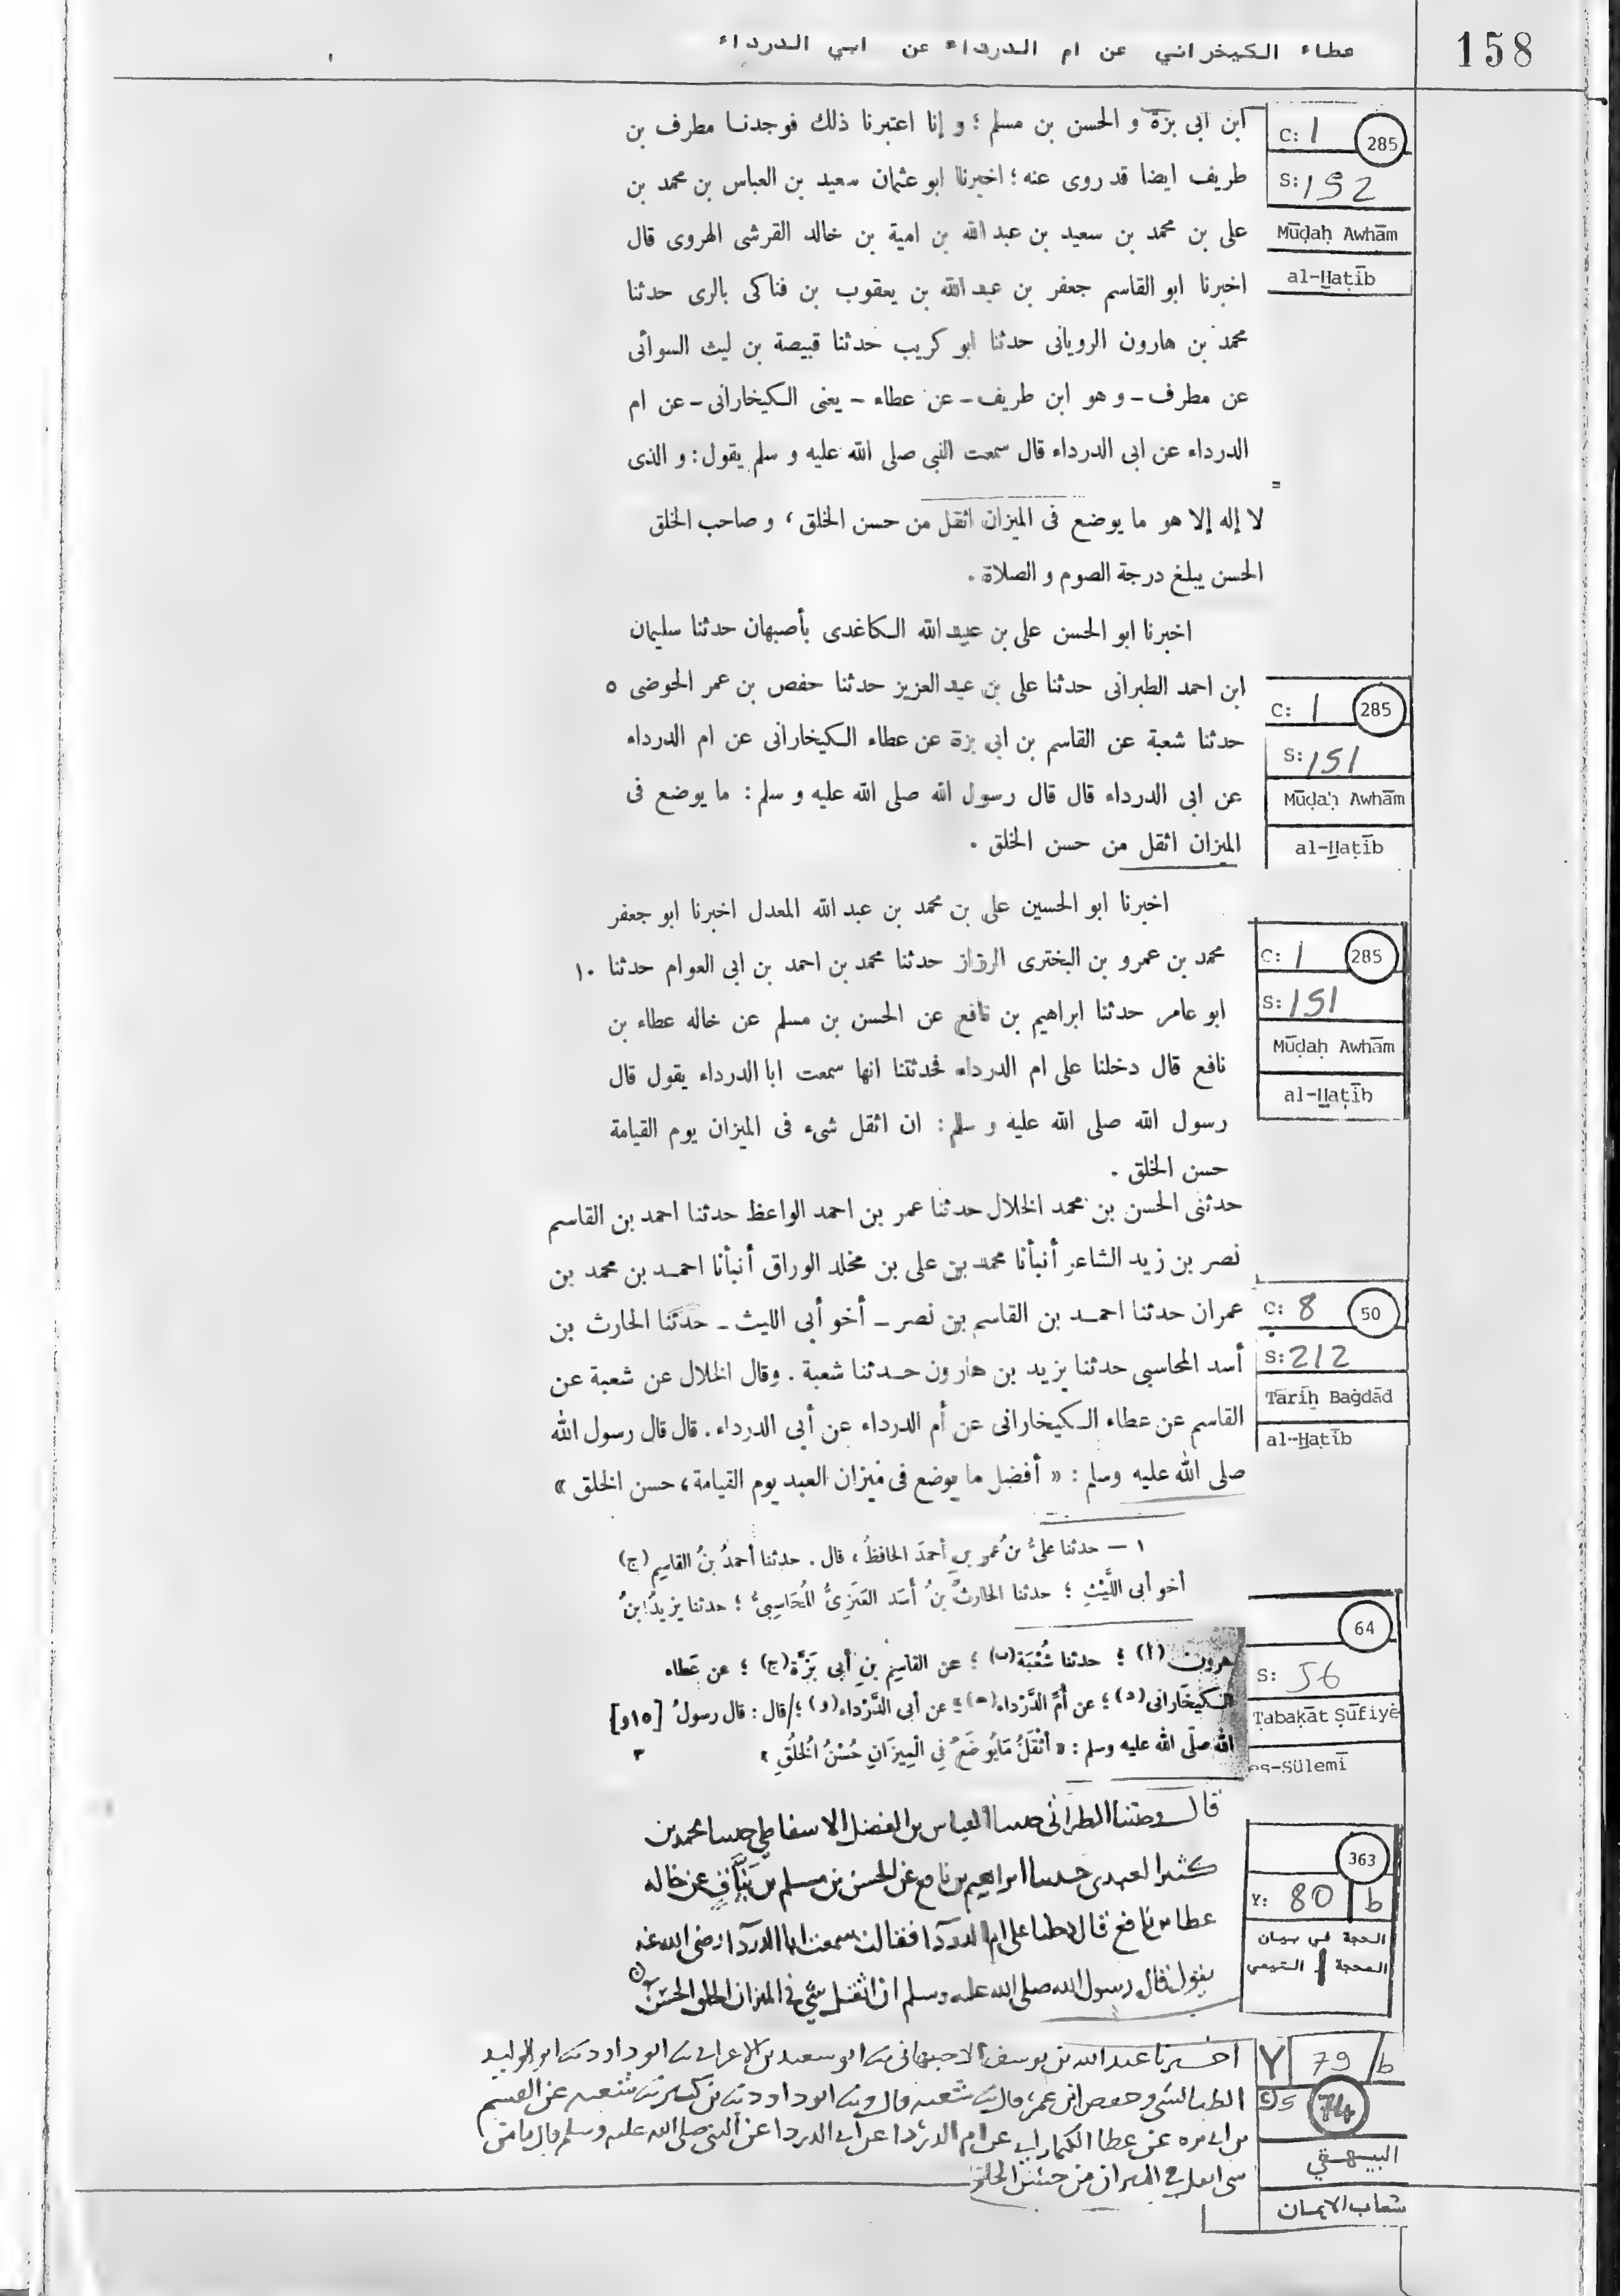 158
عطاء الكيخراني عن ام الدرداء عن ابي الدرداء
C: 1 285
S: 192
Mūḍaḥ Awhām
al-Ḫaṭīb
ابن ابى بزة و الحسن بن مسلم ؛ و إنا اعتبرنا ذلك فوجدنا مطرف بن
طريف ايضا قد روى عنه ؛ اخبرنا ابو عثمان سعيد بن العباس بن محمد بن
على بن محمد بن سعيد بن عبد الله بن امية بن خالد القرشى الهروى قال
اخبرنا ابو القاسم جعفر بن عبد الله بن يعقوب بن فناكى بالرى حدثنا
محمد بن هارون الرويانى حدثنا ابو كريب حدثنا قبيصة بن ليث السوائى
عن مطرف - و هو ابن طريف - عن عطاء - يعنى الكيخارانى - عن ام
الدرداء عن ابى الدرداء قال سمعت النبى صلى الله عليه و سلم يقول : و الذى
=
لا إله إلا هو ما يوضع فى الميزان اثقل من حسن الخلق ، و صاحب الخلق
الحسن يبلغ درجة الصوم و الصلاة .
اخبرنا ابو الحسن على بن عبيد الله الكاغدى بأصبهان حدثنا سليمان
C: 1 285
S: 151
Mūḍaḥ Awhām
al-Ḫaṭīb
ابن احمد الطبرانى حدثنا على بن عبد العزيز حدثنا حفص بن عمر الحوضى ٥
حدثنا شعبة عن القاسم بن ابى بزة عن عطاء الكيخارانى عن ام الدرداء
عن ابى الدرداء قال قال رسول الله صلى الله عليه و سلم : ما يوضع فى
الميزان اثقل من حسن الخلق .
C: 1 285
S: 151
Mūḍaḥ Awhām
al-Ḫaṭīb
اخبرنا ابو الحسين على بن محمد بن عبد الله المعدل اخبرنا ابو جعفر
محمد بن عمرو بن البخترى الرزاز حدثنا محمد بن احمد بن ابى العوام حدثنا ١٠
ابو عامر حدثنا ابراهيم بن نافع عن الحسن بن مسلم عن خاله عطاء بن
نافع قال دخلنا على ام الدرداء فحدثتنا انها سمعت ابا الدرداء يقول قال
رسول الله صلى الله عليه و سلم : ان اثقل شىء فى الميزان يوم القيامة
حسن الخلق .
حدثنى الحسن بن محمد الخلال حدثنا عمر بن احمد الواعظ حدثنا احمد بن القاسم
نصر بن زيد الشاعر أنبأنا محمد بن على بن مخلد الوراق أنبأنا احمد بن محمد بن
C: 8 50
S: 212
Tāriḫ Baġdād
al-Ḫaṭīb
عمران حدثنا احمد بن القاسم بن نصر - أخو أبى الليث - حدثنا الحارث بن
أسد المحاسبى حدثنا يزيد بن هارون حدثنا شعبة . وقال الخلال عن شعبة عن
القاسم عن عطاء الكيخارانى عن أم الدرداء عن أبى الدرداء . قال قال رسول الله
صلى الله عليه وسلم : « أفضل ما يوضع فى ميزان العبد يوم القيامة ، حسن الخلق »
١ - حدثنا علىُّ بنُ عمر بنِ أحمدَ الحافظُ ، قال . حدثنا أحمدُ بنُ القاسِمِ (ج)
أخو أبى اللَّيْثِ ؛ حدثنا الحارثُ بنُ أَسَد العَنَزِىُّ المُحَاسِبىُّ ؛ حدثنا يزيدُ ابنُ
64
S: 56
Ṭabaḳāt Ṣūfiyė
es-Sülemī
هرون (أ) ؛ حدثنا شُعْبَة (ب) ؛ عن القاسِمِ بنِ أبى بَزَّة (ج) ؛ عن عَطاء
الكيخَارانى (د) ؛ عن أُمِّ الدَّرْداء (ه) ؛ عن أبى الدَّرْداء (و) ؛ / قال : قال رسولُ [١٥و]
الله صلّى الله عليه وسلم : « أَثْقَلُ مَا يُوضَعُ فِي الْمِيزَانِ حُسْنُ الْخُلُقِ » ٣
363
Y: 80 b
الحجة في بيان
المحجة التيمي
قال وحدثنا الطبراني حدثنا العباس بن الفضل الاسفاطي حدثنا محمد بن
كثير العبدي حدثنا ابراهيم بن نافع عن الحسن بن مسلم بن يناف عن خاله
عطا بن نافع قال دخلنا على ام الدردا فقالت سمعت ابا الدردا رضي الله عنه
يقول قال رسول الله صلى الله عليه وسلم ان اثقل شي في الميزان الخلق الحسن
Y 79 b
C 5 74
البيهقي
شعاب الايمان
اخبرنا عبد الله بن يوسف الاصبهاني ابو سعيد بن الاعرابي ابو داود ابو الوليد
الطيالسي وحفص ابن عمر قال شعبه قال ابو داود بن كثير شعبه عن القسم
بن ابي بزه عن عطا الكيخاراني عن ام الدردا عن ابي الدردا عن النبي صلى الله عليه وسلم قال ما من
شي اثقل في الميزان من حسن الخلق